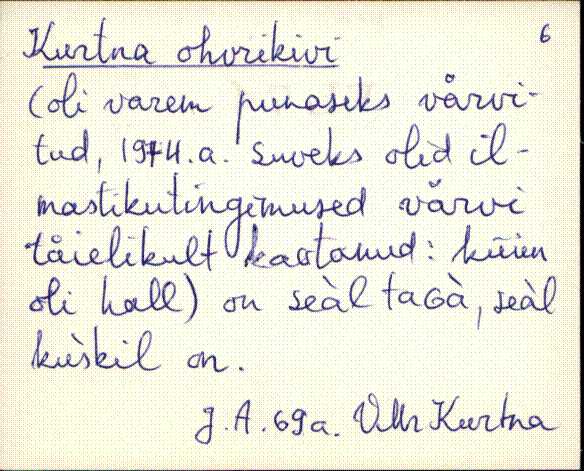 6
Kurtna ohvrikivi
(oli varem punaseks värvi-
tud, 1974.a. suveks olid il-
mastikutingimused värvi
täielikult kaotanud: kivi
oli hall) on seàl tagà, seàl
kùskil on.
J.A. 69a. VMr Kurtna